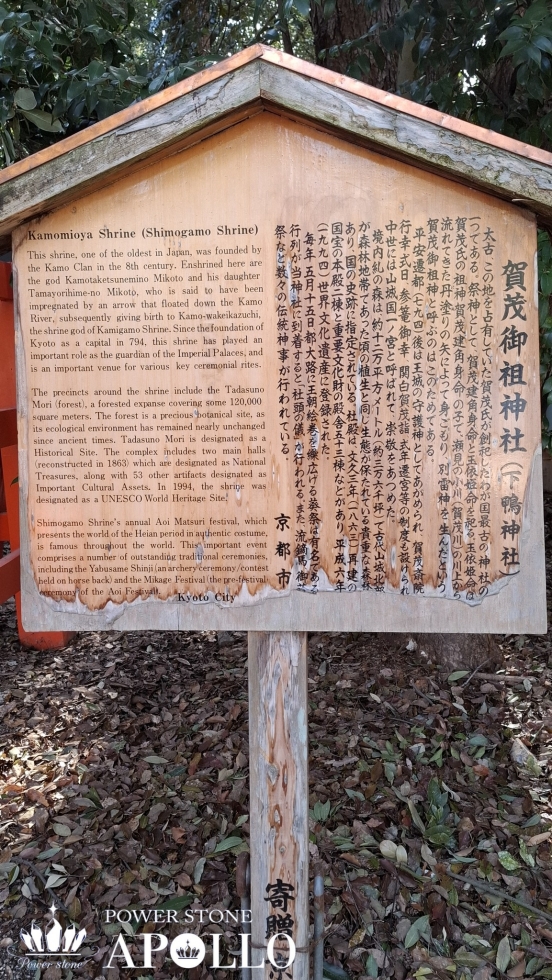 賀茂御祖神社(下鴨神社)
太古この地を占有していた賀茂氏が創祀したわが国最古の神社の
一つである。祭神として、賀茂建角身命と玉依媛命を祀る。玉依媛命は
賀茂氏の祖神賀茂建角身命の子で、瀬見の小川(賀茂川)の川上から
流れてきた丹塗りの矢によって身ごもり、別雷神を生んだという。
賀茂御祖神と呼ぶのはこのためである。
平安遷都(七九四)後は王城の守護神としてあがめられ、賀茂斎院
行幸式日、参篭御幸、関白賀茂詣、式年遷宮等の制度も設けられ
中世には山城国一ノ宮と呼ばれて、崇敬をあつめた。
境内糺の森は、約十二万平方メートル(約三万六千坪)で古代山城北部
が森林地帯であった頃の植生と同じ生態が保たれている貴重な森林で
あり、国の史跡に指定されている。社殿は、文久三年(一八六三)再建の
国宝の本殿二棟と重要文化財の殿舎五十三棟などがあり、平成六年
(一九九四)世界文化遺産に登録された。
毎年、五月十五日都大路に王朝絵巻を繰広げる葵祭は有名である
行列が当神社に到着すると「社頭の儀」が行われる。また、流鏑馬、御蔭
祭など数々の伝統神事が行われている。
京都市
Kamomioya Shrine (Shimogamo Shrine)
This shrine, one of the oldest in Japan, was founded by
the Kamo Clan in the 8th century. Enshrined here are
the god Kamotaketsunemino Mikoto and his daughter
Tamayorihime-no Mikoto, who is said to have been
impregnated by an arrow that floated down the Kamo
River, subsequently giving birth to Kamo-wakeikazuchi,
the shrine god of Kamigamo Shrine. Since the foundation of
Kyoto as a capital in 794, this shrine has played an
important role as the guardian of the Imperial Palaces, and
is an important venue for various key ceremonial rites.
The precincts around the shrine include the Tadasuno
Mori (forest), a forested expanse covering some 120,000
square meters. The forest is a precious botanical site, as
its ecological environment has remained nearly unchanged
since ancient times. Tadasuno Mori is designated as a
Historical Site. The complex includes two main halls
(reconstructed in 1863) which are designated as National
Treasures, along with 53 other artifacts designated as
Important Cultural Assets. In 1994, the shrine was
designated as a UNESCO World Heritage Site.
Shimogamo Shrine's annual Aoi Matsuri festival, which
presents the world of the Heian period in authentic costume,
is famous throughout the world. This important event
comprises a number of outstanding traditional ceremonies,
including the Yabusame Shinji (an archery ceremony/contest
held on horse back) and the Mikage Festival (the pre-festival
ceremony of the Aoi Festival).
Kyoto City
寄贈
Power stone
POWER STONE
APOLLO